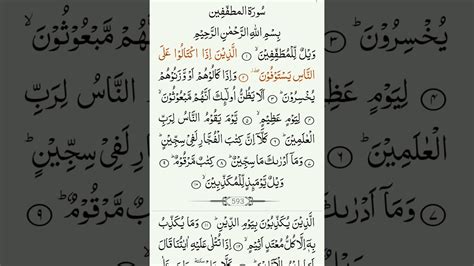 سُورَة المطفّفِين
بِسْمِ اللهِ الرَّحْمٰنِ الرَّحِيْمِ
وَيْلٌ لِّلْمُطَفِّفِيْنَ ۙ ۱ الَّذِيْنَ اِذَا اكْتَالُوْا عَلَى
النَّاسِ يَسْتَوْفُوْنَ ۲ وَاِذَا كَالُوْهُمْ اَوْ وَّزَنُوْهُمْ
يُخْسِرُوْنَ ۳ اَلَا يَظُنُّ اُولٰٓئِكَ اَنَّهُمْ مَّبْعُوْثُوْنَ ۴
لِيَوْمٍ عَظِيْمٍ ۵ يَّوْمَ يَقُوْمُ النَّاسُ لِرَبِّ
الْعٰلَمِيْنَ ۶ كَلَّآ اِنَّ كِتٰبَ الْفُجَّارِ لَفِيْ سِجِّيْنٍ ۷
وَمَآ اَدْرٰىكَ مَا سِجِّيْنٌ ۸ كِتٰبٌ مَّرْقُوْمٌ ۹
وَيْلٌ يَّوْمَئِذٍ لِّلْمُكَذِّبِيْنَ ۱۰
593
الَّذِيْنَ يُكَذِّبُوْنَ بِيَوْمِ الدِّيْنِ ۱۱ وَمَا يُكَذِّبُ
بِهٖٓ اِلَّا كُلُّ مُعْتَدٍ اَثِيْمٍ ۱۲ اِذَا تُتْلٰى عَلَيْهِ اٰيٰتُنَا قَالَ